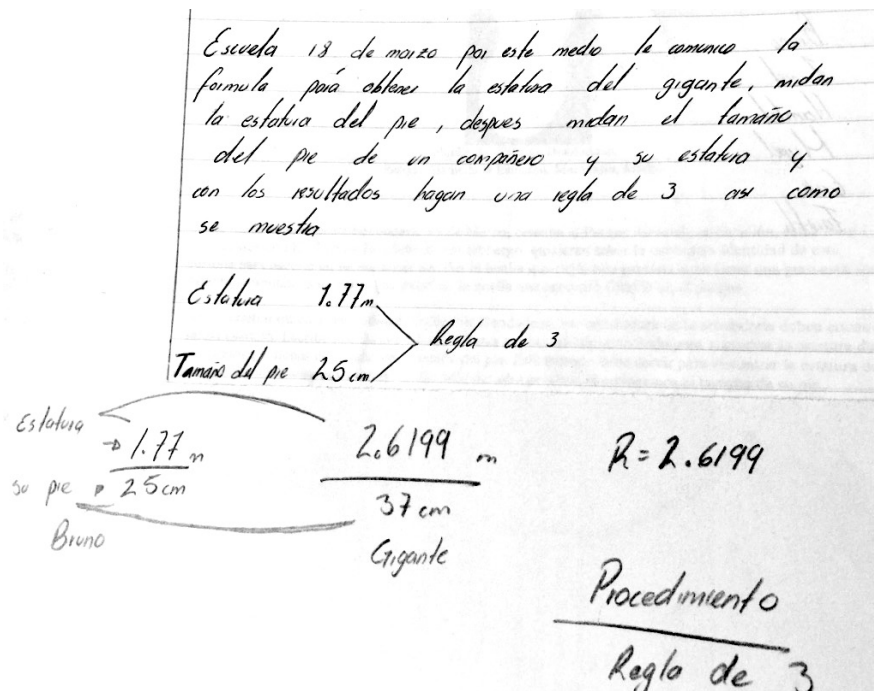 Escuela 18 de marzo por este medio le comunico la
formula para obtener la estatura del gigante, midan
la estatura del pie, despues midan el tamaño
del pie de un compañero y su estatura y
con los resultados hagan una regla de 3 asi como
se muestra
Estatura 1.77m
Regla de 3
Tamaño del pie 25cm
Estatura
1.77 m
2.6199 m
R=2.6199
su pie 25cm
37 cm
Bruno
Gigante
Procedimiento
Regla de 3